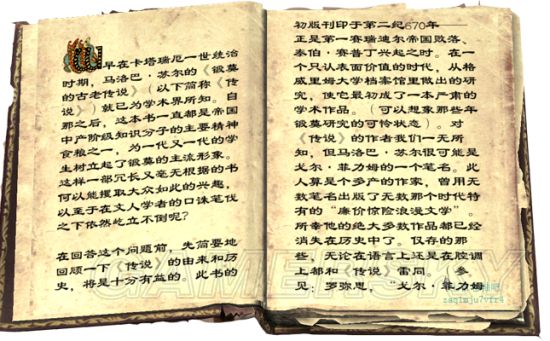 早在卡塔瑞厄一世统治
时期，马洛巴·苏尔的《锻莫
的古老传说》（以下简称《传
说》）就已为学术界所知。自
那之后，这本书一直都是帝国
中产阶级知识分子的主要精神
食粮之一，为一代又一代的学
生树立起了锻莫的主流形象。
这样一部冗长又毫无根据的书
何以能攫取大众如此的兴趣，
以至于在文人学者的口诛笔伐
之下依然屹立不倒呢？
在回答这个问题前，先简要地
回顾一下《传说》的由来和历
史，将是十分有益的。此书的
初版刊印于第二纪670年——
正是第一赛瑞迪尔帝国败落、
泰伯·赛普丁兴起之时。在一
个只认表面价值的时代，从格
威里姆大学档案馆里做出的研
究，使它最初成了一本严肃的
学术作品。（可以想象那些年
锻莫研究的可怜状态）。对
《传说》的作者我们一无所
知，但马洛巴·苏尔很可能是
戈尔·菲力姆的一个笔名。此
人算是个多产的作家，曾用无
数笔名出版了无数那个时代特
有的“廉价惊险浪漫文学”。
所幸他的绝大多数作品都已经
消失在历史中了。仅存的那
些，无论在语言上还是在腔调
上都和《传说》雷同。（参
见：罗弥思，“戈尔·菲力姆
GAMERSKY
zaqimju7vfr4